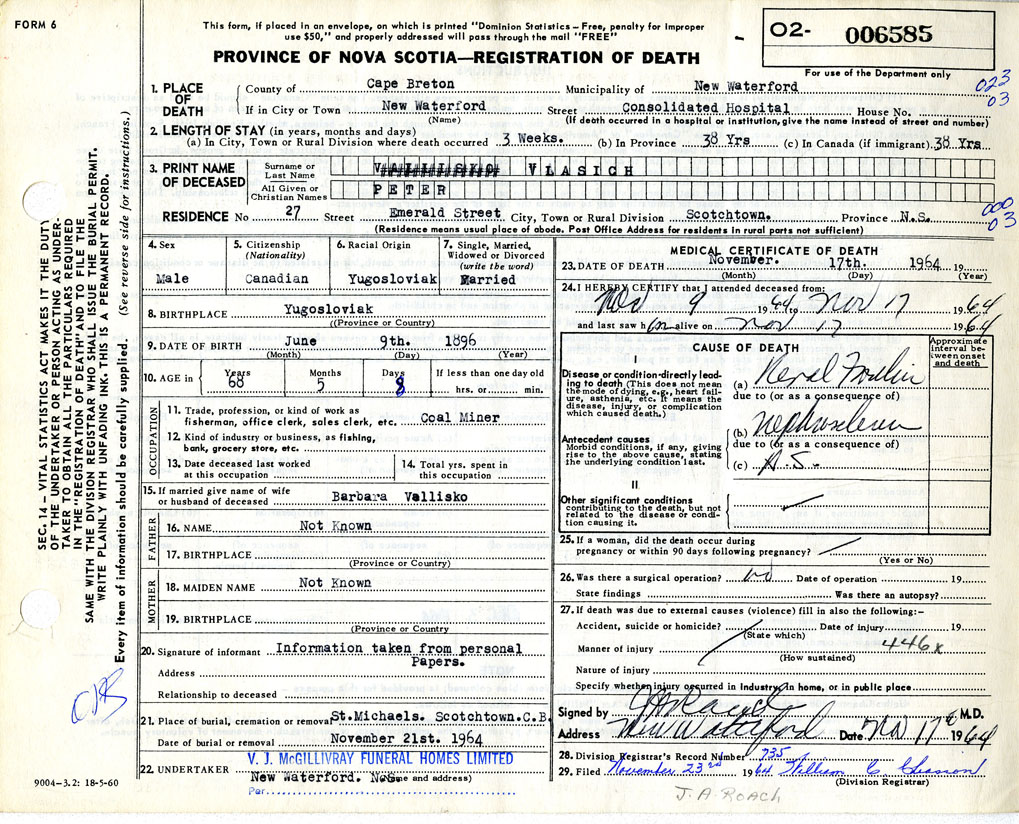 FORM 6
This form, if placed in an envelope, on which is printed "Dominion Statistics – Free, penalty for improper
use $50," and properly addressed will pass through the mail "FREE"
PROVINCE OF NOVA SCOTIA—REGISTRATION OF DEATH
02- 006585
For use of the Department only
1. PLACE OF DEATH
County of Cape Breton Municipality of New Waterford
023
03
If in City or Town New Waterford Street Consolidated Hospital House No.
(Name) (If death occurred in a hospital or institution, give the name instead of street and number)
2. LENGTH OF STAY (in years, months and days)
(a) In City, Town or Rural Division where death occurred 3 Weeks. (b) In Province 38 Yrs (c) In Canada (if immigrant) 38 Yrs
3. PRINT NAME OF DECEASED
Surname or Last Name VLASICH
All Given or Christian Names PETER
RESIDENCE No 27 Street Emerald Street City, Town or Rural Division Scotchtown. Province N.S.
000
03
(Residence means usual place of abode. Post Office Address for residents in rural parts not sufficient)
4. Sex
Male
5. Citizenship (Nationality)
Canadian
6. Racial Origin
Yugosloviak
7. Single, Married, Widowed or Divorced (write the word)
Married
8. BIRTHPLACE Yugosloviak
((Province or Country)
9. DATE OF BIRTH June 9th. 1896
(Month) (Day) (Year)
10. AGE in Years 68 Months 5 Days 8 If less than one day old
hrs. or min.
OCCUPATION
11. Trade, profession, or kind of work as
fisherman, office clerk, sales clerk, etc. Coal Miner
12. Kind of industry or business, as fishing,
bank, grocery store, etc.
13. Date deceased last worked
at this occupation
14. Total yrs. spent in
this occupation
15. If married give name of wife
or husband of deceased Barbara Vallisko
FATHER
16. NAME Not Known
17. BIRTHPLACE
(Province or Country)
MOTHER
18. MAIDEN NAME Not Known
19. BIRTHPLACE
(Province or Country
20. Signature of informant Information taken from personal
Papers.
Address
Relationship to deceased
21. Place of burial, cremation or removal St.Michaels. Scotchtown.C.B.
Date of burial or removal November 21st. 1964
V. J. McGILLIVRAY FUNERAL HOMES LIMITED
22. UNDERTAKER New Waterford. and address)
Per
9004–3.2: 18-5-60
MEDICAL CERTIFICATE OF DEATH
23. DATE OF DEATH November. 17th. 1964 19
(Month) (Day) (Year)
24. I HEREBY CERTIFY that I attended deceased from:
Nov 9 1964 to Nov 17 1964
and last saw him alive on Nov 17 1964
CAUSE OF DEATH
Approximate interval between onset and death
I
Disease or condition directly leading to death (This does not mean
the mode of dying, e.g., heart failure, asthenia, etc. It means the
disease, injury, or complication
which caused death.)
(a) Renal
due to (or as a consequence of)
(b)
due to (or as a consequence of)
Antecedent causes
Morbid conditions, if any, giving
rise to the above cause, stating
the underlying condition last.
(c) A.S.
II
Other significant conditions
contributing to the death, but not
related to the disease or condition causing it.
25. If a woman, did the death occur during
pregnancy or within 90 days following pregnancy?
(Yes or No)
26. Was there a surgical operation? no Date of operation 19
State findings Was there an autopsy?
27. If death was due to external causes (violence) fill in also the following:–
Accident, suicide or homicide? Date of injury 19
(State which)
Manner of injury 446x
(How sustained)
Nature of injury
Specify whether injury occurred in industry, in home, or in public place
Signed by M.D.
Address New Waterford Date Nov 17 1964
28. Division Registrar's Record Number 735
29. Filed November 23rd 1964 William C. Gleason
(Division Registrar)
J. A. ROACH
SEC. 14 – VITAL STATISTICS ACT MAKES IT THE DUTY
OF THE UNDERTAKER OR PERSON ACTING AS UNDER-
TAKER TO OBTAIN ALL THE PARTICULARS REQUIRED
IN THE "REGISTRATION OF DEATH" AND TO FILE THE
SAME WITH THE DIVISION REGISTRAR WHO SHALL ISSUE THE BURIAL PERMIT.
WRITE PLAINLY WITH UNFADING INK. THIS IS A PERMANENT RECORD.
Every item of information should be carefully supplied. (See reverse side for instructions.)